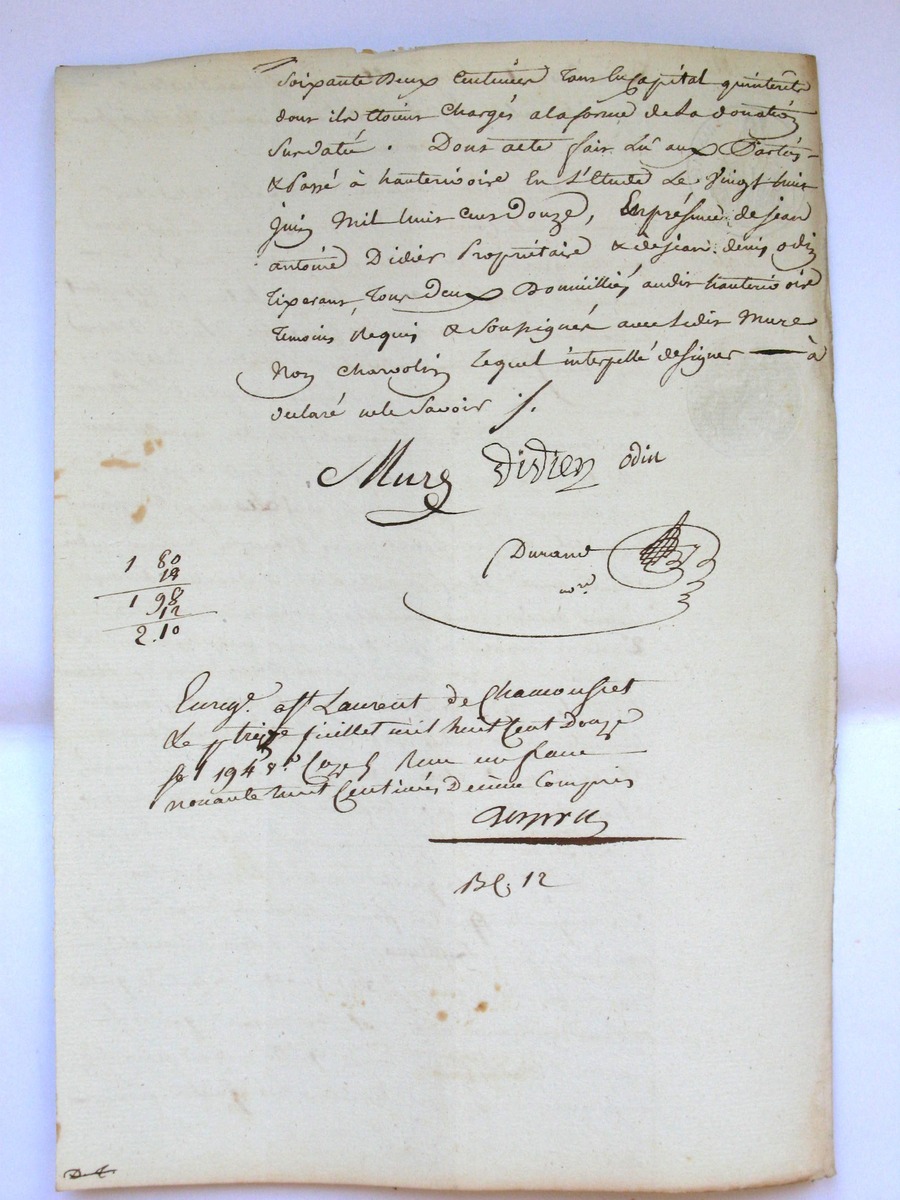 Soixante deux centimes tant en capital qu'interêts
dont ils étoient chargés a la forme de La donation
Susdatée . Dont acte fait Lu aux Parties
& Passé à hauterivoire En L'Etude Le Vingt huit
juin Mil huit cent Douze, En présence de jean
antoine Didier Propriétaire & de jean denis odin
tixerant tous Deux Domiciliés audit hauterivoire
temoins Requis & Soussignés avec Ledit Mure
Non charvolin Lequel interpellé de signer — à
declaré ne le Savoir ./.
Mure Didier odin
Durand
nore
1 80
18
1 98
12
2.10
Enregé. a St Laurent de Chamousset
Le treize juillet mil huit Cent Douze
fol 194 vo Caze 1 Reçu un franc
nonante huit Centimes Décime Compris
Bl. 12